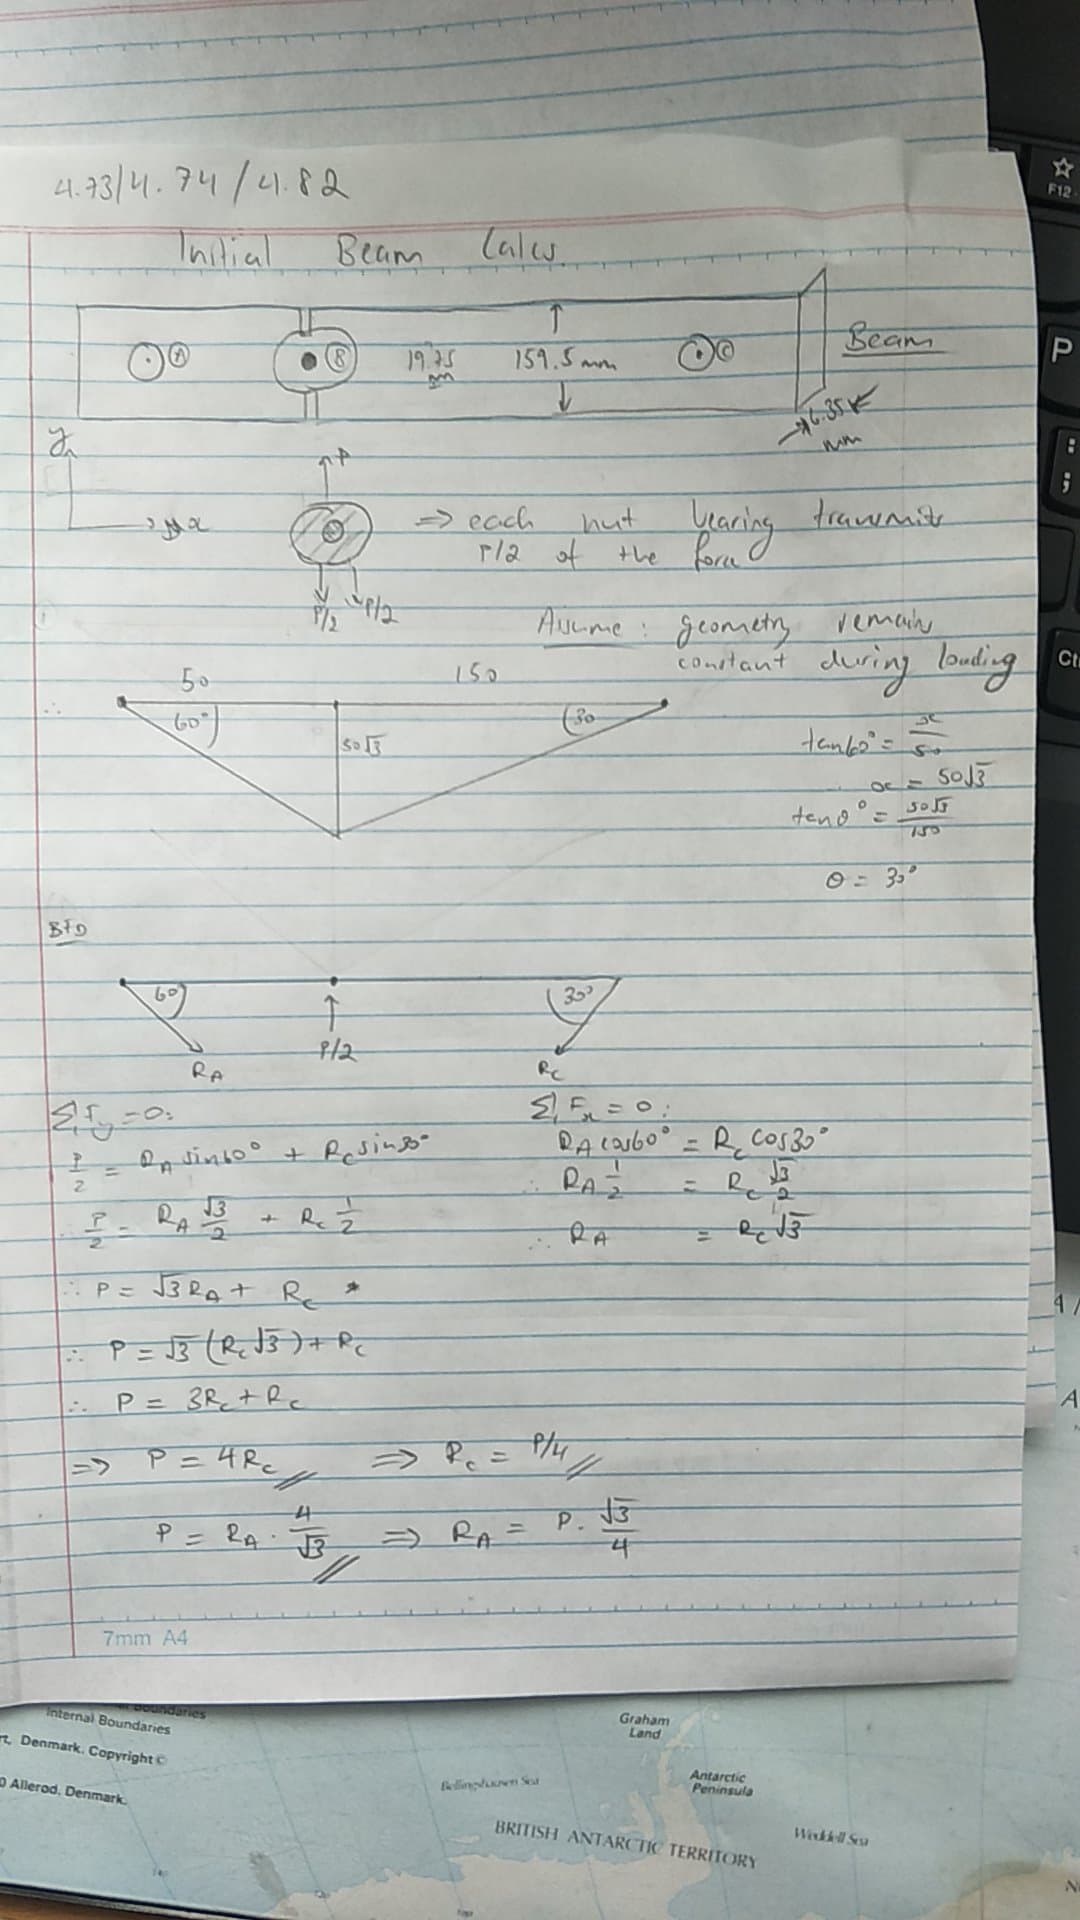 4.73/4.74/4.82
Initial Beam Calcs.
A B 19.75 mm 159.5 mm C Beam
6.35 mm
y
x
P
P/2 P/2
⇒ each nut bearing transmits
P/2 of the force
Assume: geometry remain
constant during loading
50 150
∴ 60° 50√3 30
tan60° = x/50
x = 50√3
tanθ° = 50√3/150
θ = 30°
BFD
60° 30°
RA P/2 Rc
ΣFy = 0:
P/2 = RA sin60° + Rc sin30°
∴ P/2 = RA √3/2 + Rc 1/2
∴ P = √3 RA + Rc *
∴ P = √3 (Rc √3) + Rc
∴ P = 3Rc + Rc
⇒ P = 4Rc ⇒ Rc = P/4
P = RA · 4/√3 ⇒ RA = P · √3/4
ΣFx = 0:
RA cos60° = Rc cos30°
∴ RA 1/2 = Rc √3/2
∴ RA = Rc √3
7mm A4
F12
P
:
;
Ctr
Boundaries
Internal Boundaries
rt, Denmark. Copyright ©
Allerod, Denmark.
Graham
Land
Bellingshausen Sea
Antarctic
Peninsula
BRITISH ANTARCTIC TERRITORY
Weddell Sea